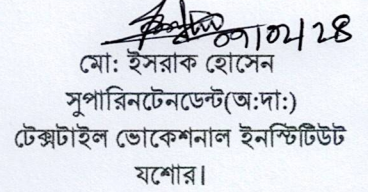 ০৭/০২/২৪
মো: ইসরাক হোসেন
সুপারিনটেনডেন্ট(অ:দা:)
টেক্সটাইল ভোকেশনাল ইনস্টিটিউট
যশোর।